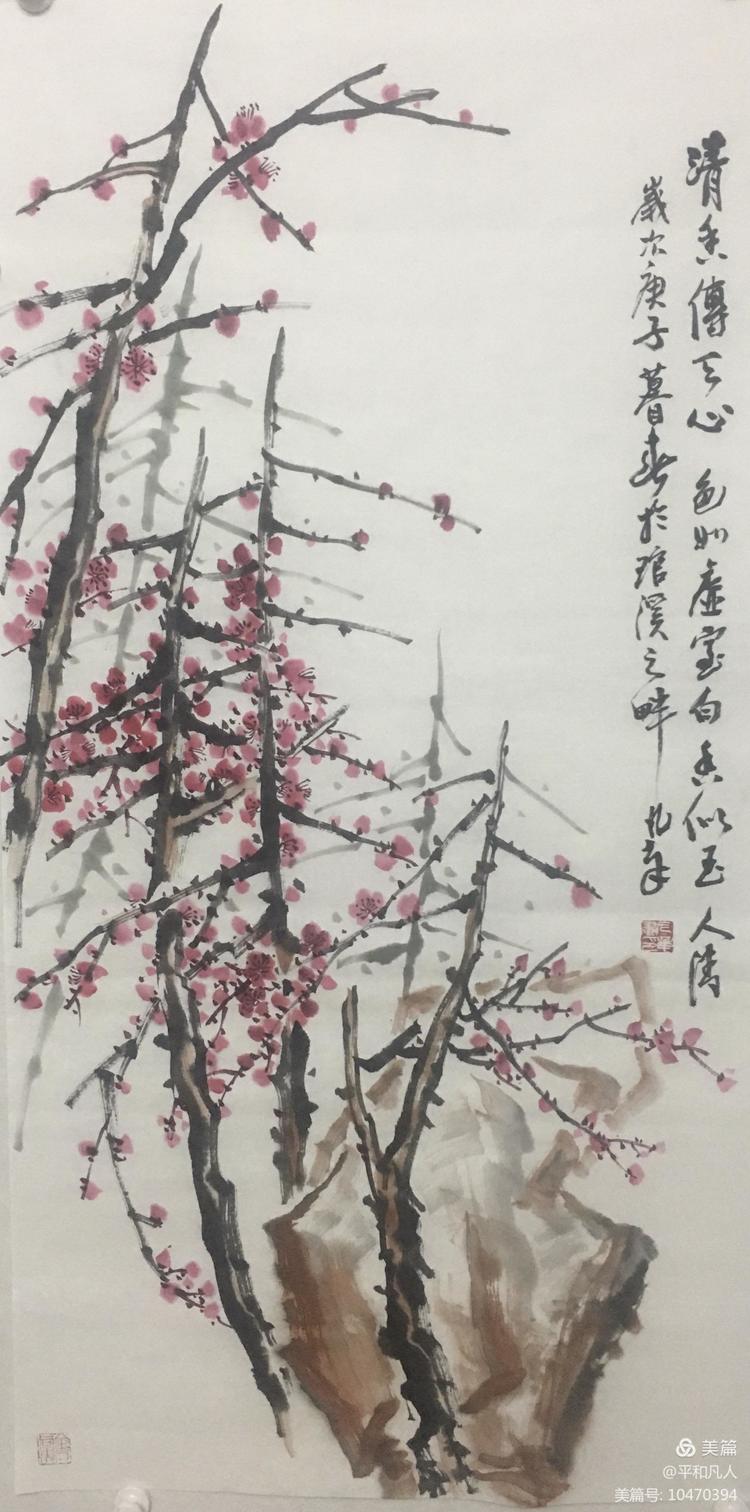 清香傳天心 色如虛室白 香似玉人清
歲次庚子暮春於琅溪之畔
美篇
@平和凡人
美篇号: 10470394